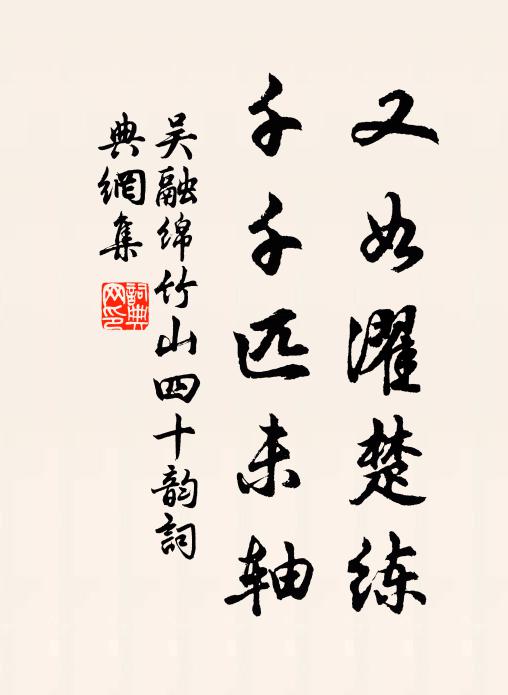 又如濯楚练
千千匹未轴
吴融绵竹山四十韵詞
典網集
詞典
网印